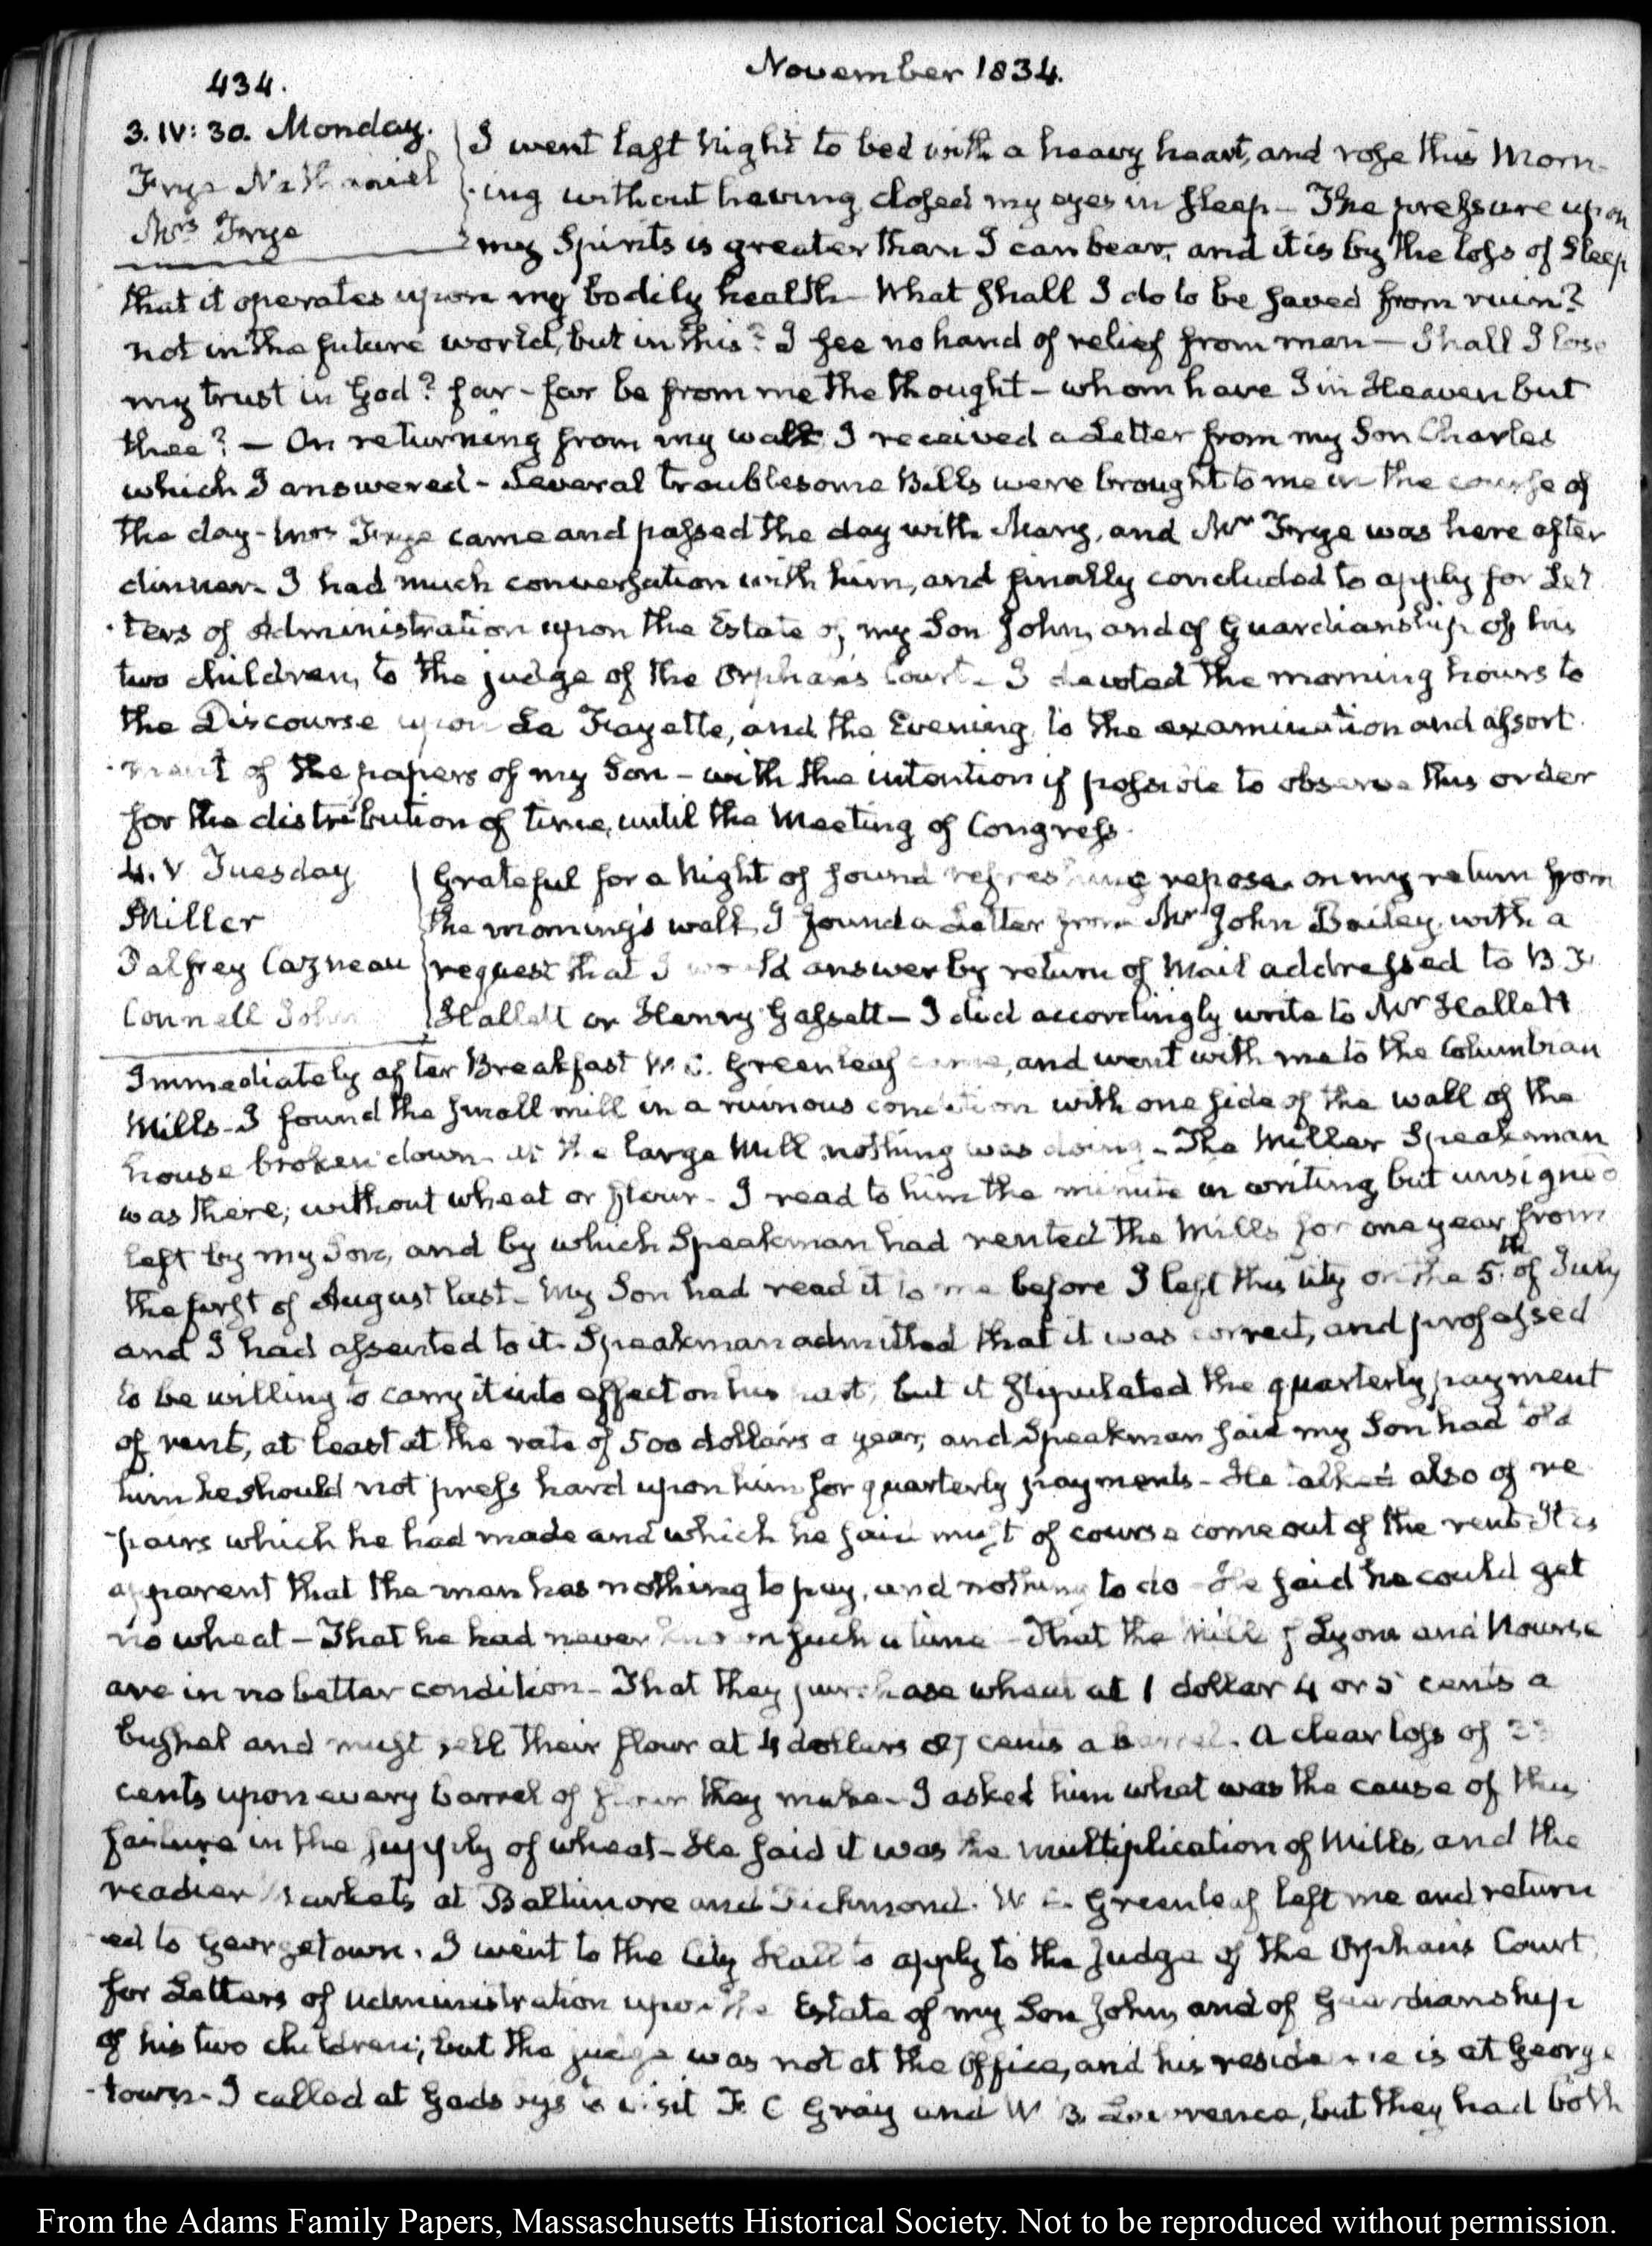 434.
November 1834.
3. IV: 30. Monday.
Frye Nathaniel
Mrs Frye
I went last Night to bed with a heavy heart, and rose this Morn-
-ing without having closed my eyes in sleep – The pressure upon
my Spirits is greater than I can bear, and it is by the loss of Sleep
that it operates upon my bodily health – What shall I do to be saved from ruin?
not in the future world, but in this? I see no hand of relief from man – Shall I lose
my trust in God? far – far be from me the thought – whom have I in Heaven but
thee? – On returning from my walk I received a Letter from my Son Charles
which I answered – Several troublesome Bills were brought to me in the course of
the day – Mrs Frye came and passed the day with Mary, and Mr Frye was here after
dinner – I had much conversation with him, and finally concluded to apply for Let
-ters of Administration upon the Estate of my Son John, and of Guardianship of his
two children, to the judge of the Orphan's Court – I devoted the morning hours to
the Discourse upon La Fayette, and the Evening to the examination and assort
-ment of the papers of my Son – with the intention if possible to observe this order
for the distribution of time, until the Meeting of Congress.
4. V Tuesday
Miller
Palfrey Cazneau
Connell John
Grateful for a Night of sound refreshing repose. on my return from
the morning's walk, I found a Letter from Mr John Bailey, with a
request that I would answer by return of Mail addressed to B. F.
Hallett or Henry Gassett – I did accordingly write to Mr Hallett
Immediately after Breakfast W. C. Greenleaf came, and went with me to the Columbian
Mills – I found the small mill in a ruinous condition with one side of the wall of the
house broken down – at the large Mill nothing was doing – The Miller Speakman
was there; without wheat or flour – I read to him the minute in writing, but unsigned
left by my Son, and by which Speakman had rented the Mills for one year from
the first of August last – My Son had read it to me before I left this City on the 5th of July
and I had assented to it. Speakman admitted that it was correct, and professed
to be willing to carry it into effect on his part, but it stipulated the quarterly payment
of rent, at least at the rate of 500 dollars a year, and Speakman said my Son had told
him he should not press hard upon him for quarterly payments – He talked also of re
-pairs which he had made and which he said must of course come out of the rent. It is
apparent that the man has nothing to pay, and nothing to do – He said he could get
no wheat – That he had never known such a time – That the Mills of Lyons and Nourse
are in no better condition – That they purchase wheat at 1 dollar 4 or 5 cents a
bushel and must sell their flour at 4 dollars 87 cents a barrel. A clear loss of
cents upon every barrel of flour they make – I asked him what was the cause of this
failure in the supply of wheat – He said it was the multiplication of Mills, and the
readier Markets at Baltimore and Richmond. W. C. Greenleaf left me and return
-ed to Georgetown. I went to the City Hall to apply to the Judge of the Orphan's Court
for Letters of Administration upon the Estate of my Son John, and of Guardianship
of his two children; but the judge was not at the Office, and his residence is at George
-town – I called at Gadsby's to visit F. C Gray and W. B. Lawrence, but they had both
From the Adams Family Papers, Massaschusetts Historical Society. Not to be reproduced without permission.